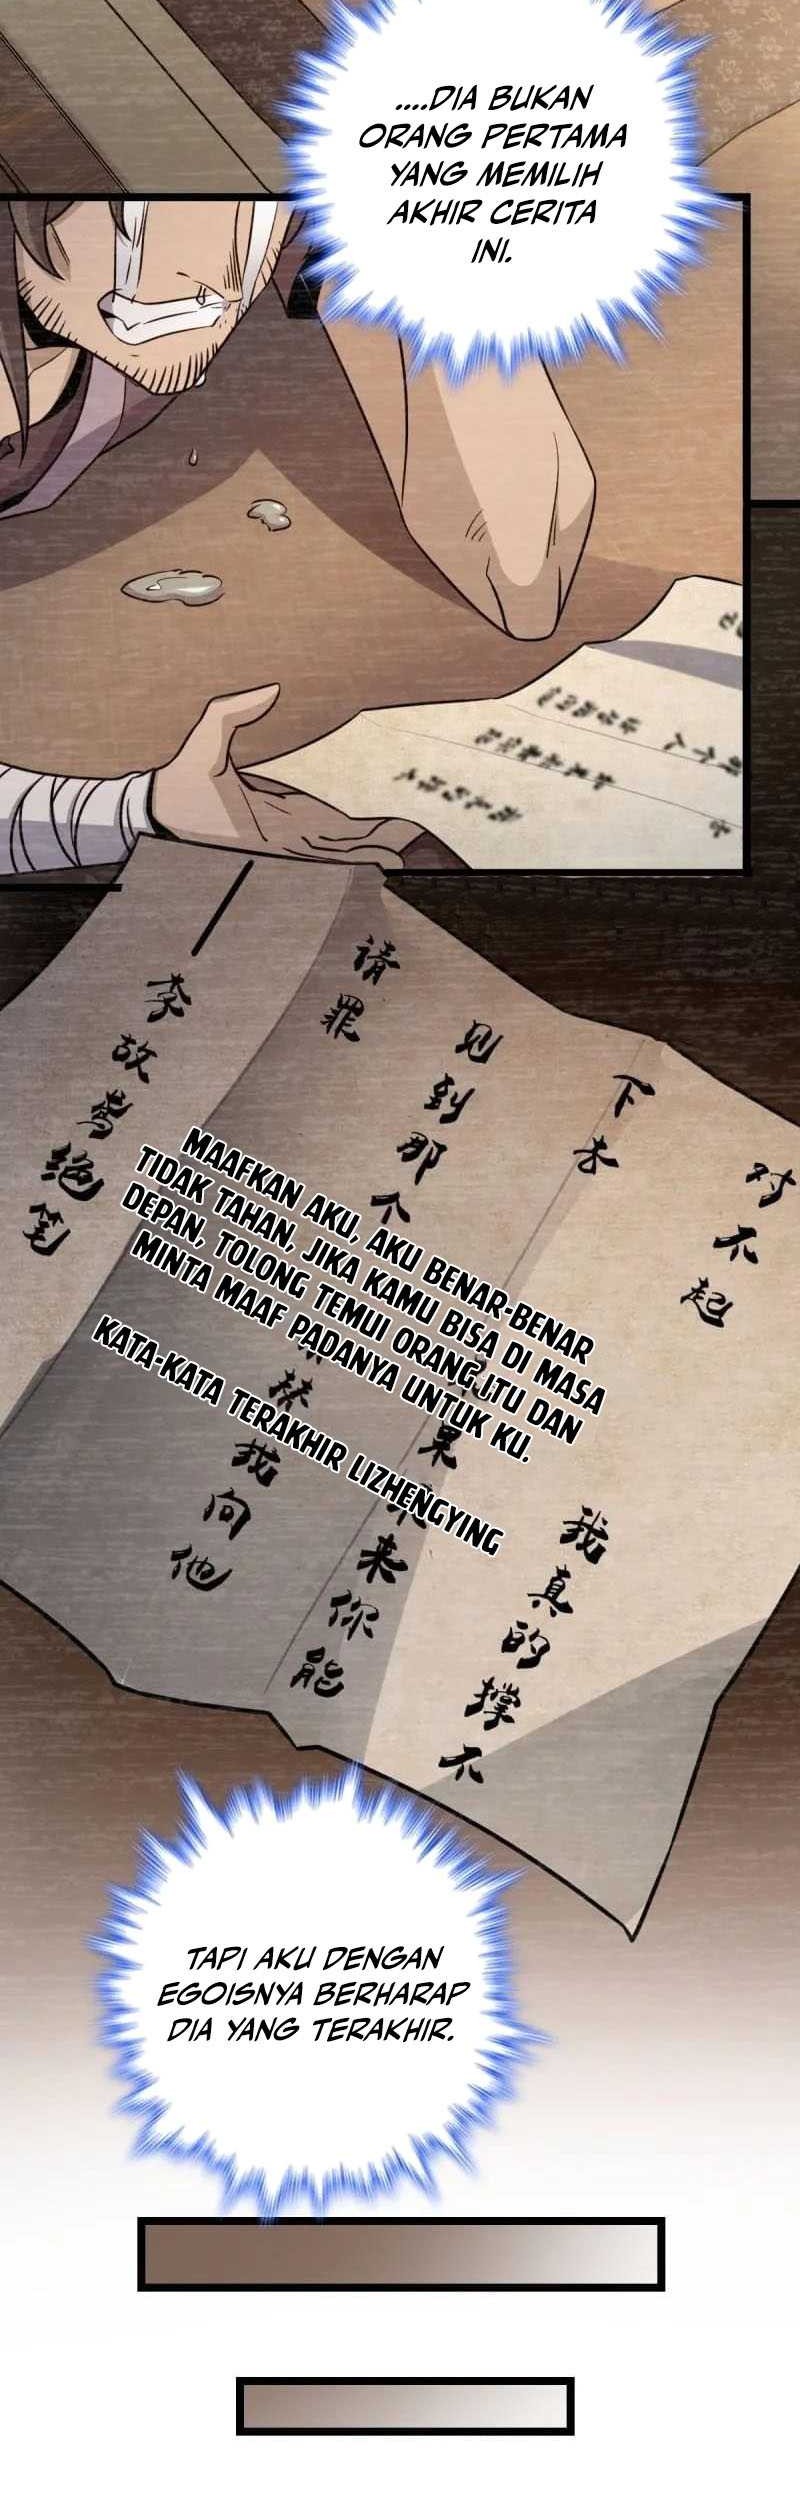 ....DIA BUKAN
ORANG PERTAMA
YANG MEMILIH
AKHIR CERITA
INI.
对不起
我真的撑不
下去
果
来你能
见到那个
替我向他
请罪
MAAFKAN AKU, AKU BENAR-BENAR
TIDAK TAHAN, JIKA KAMU BISA DI MASA
DEPAN, TOLONG TEMUI ORANG ITU DAN
MINTA MAAF PADANYA UNTUK KU.
KATA-KATA TERAKHIR LIZHENGYING
绝笔
TAPI AKU DENGAN
EGOISNYA BERHARAP
DIA YANG TERAKHIR.